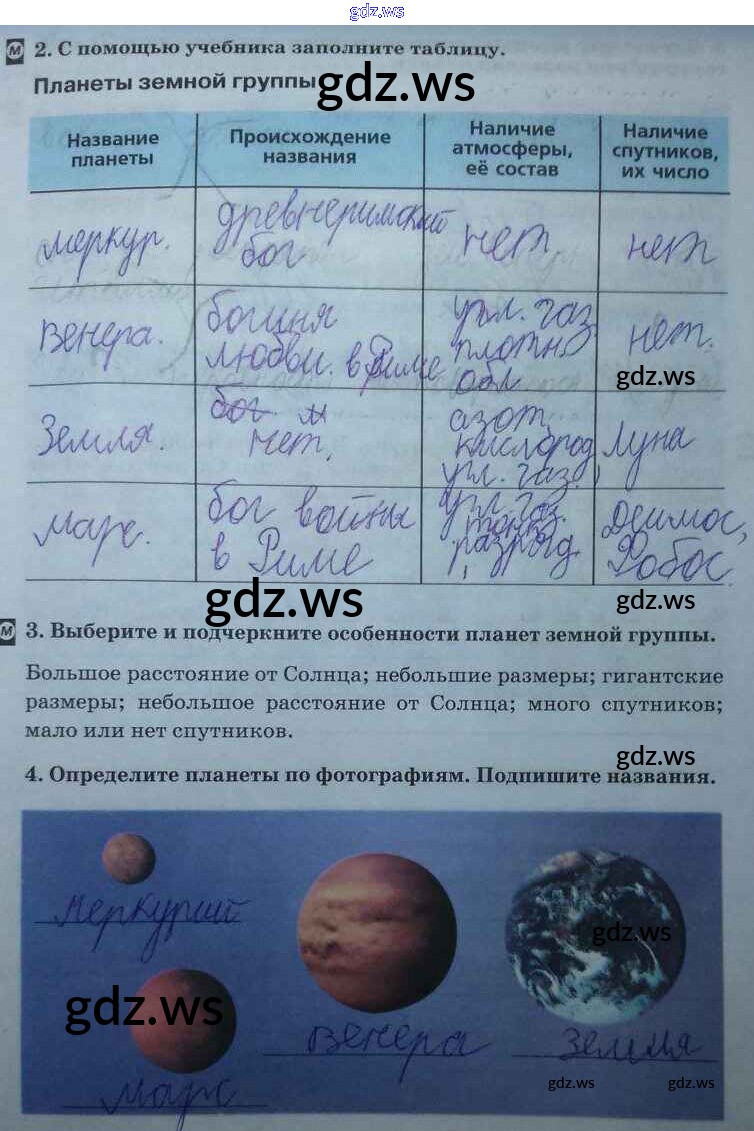 gdz.ws
М 2. С помощью учебника заполните таблицу.
Планеты земной группы
gdz.ws
Название планеты
Происхождение названия
Наличие атмосферы, её состав
Наличие спутников, их число
меркур.
древнеримский
бог
нет
нет
венера.
богиня
любви. в Риме
угл. газ
плотн
обл
нет.
gdz.ws
Земля.
бог. м
нет.
азот,
кислород
угл. газ.
Луна
марс.
бог войны
в Риме
угл. газ.
тонкая
разрежд
Деимос,
Фобос.
gdz.ws
gdz.ws
М 3. Выберите и подчеркните особенности планет земной группы.
Большое расстояние от Солнца; небольшие размеры; гигантские
размеры; небольшое расстояние от Солнца; много спутников;
мало или нет спутников.
gdz.ws
4. Определите планеты по фотографиям. Подпишите названия.
меркурий
gdz.ws
gdz.ws
венера
земля
марс
gdz.ws
gdz.ws